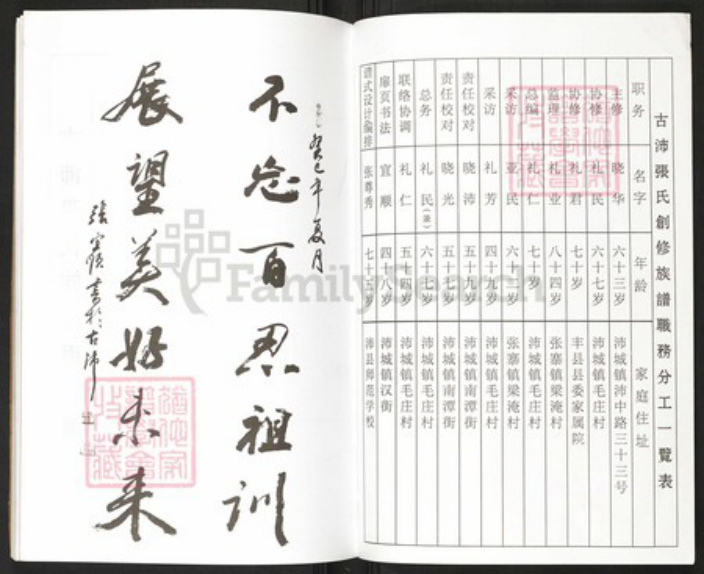 古沛張氏創修族譜職務分工一覽表
职务 名字 年龄 家庭住址
主修 晓华 六十三岁 沛城镇沛中路三十三号
协修 礼民 六十七岁 沛城镇毛庄村
协修 礼君 七十岁 丰县县委家属院
监理 礼亚 八十四岁 张寨镇梁淹村
总编 礼仁 七十岁 沛城镇毛庄村
采访 亚民 六十岁 张寨镇梁淹村
采访 礼芳 四十九岁 沛城镇毛庄村
责任校对 晓沛 五十九岁 沛城镇南潭街
责任校对 晓光 五十七岁 沛城镇南潭街
总务 礼民(兼) 六十七岁 沛城镇毛庄村
联络协调 礼仁 五十四岁 沛城镇毛庄村
扉页书法 宜顺 四十八岁 沛城镇汉街
谱式设计编排 张尊秀 七十五岁 沛县师范学校
癸巳年夏月
不忘百忍祖训
展望美好未来
張宜顺書於古沛
FamilySearch